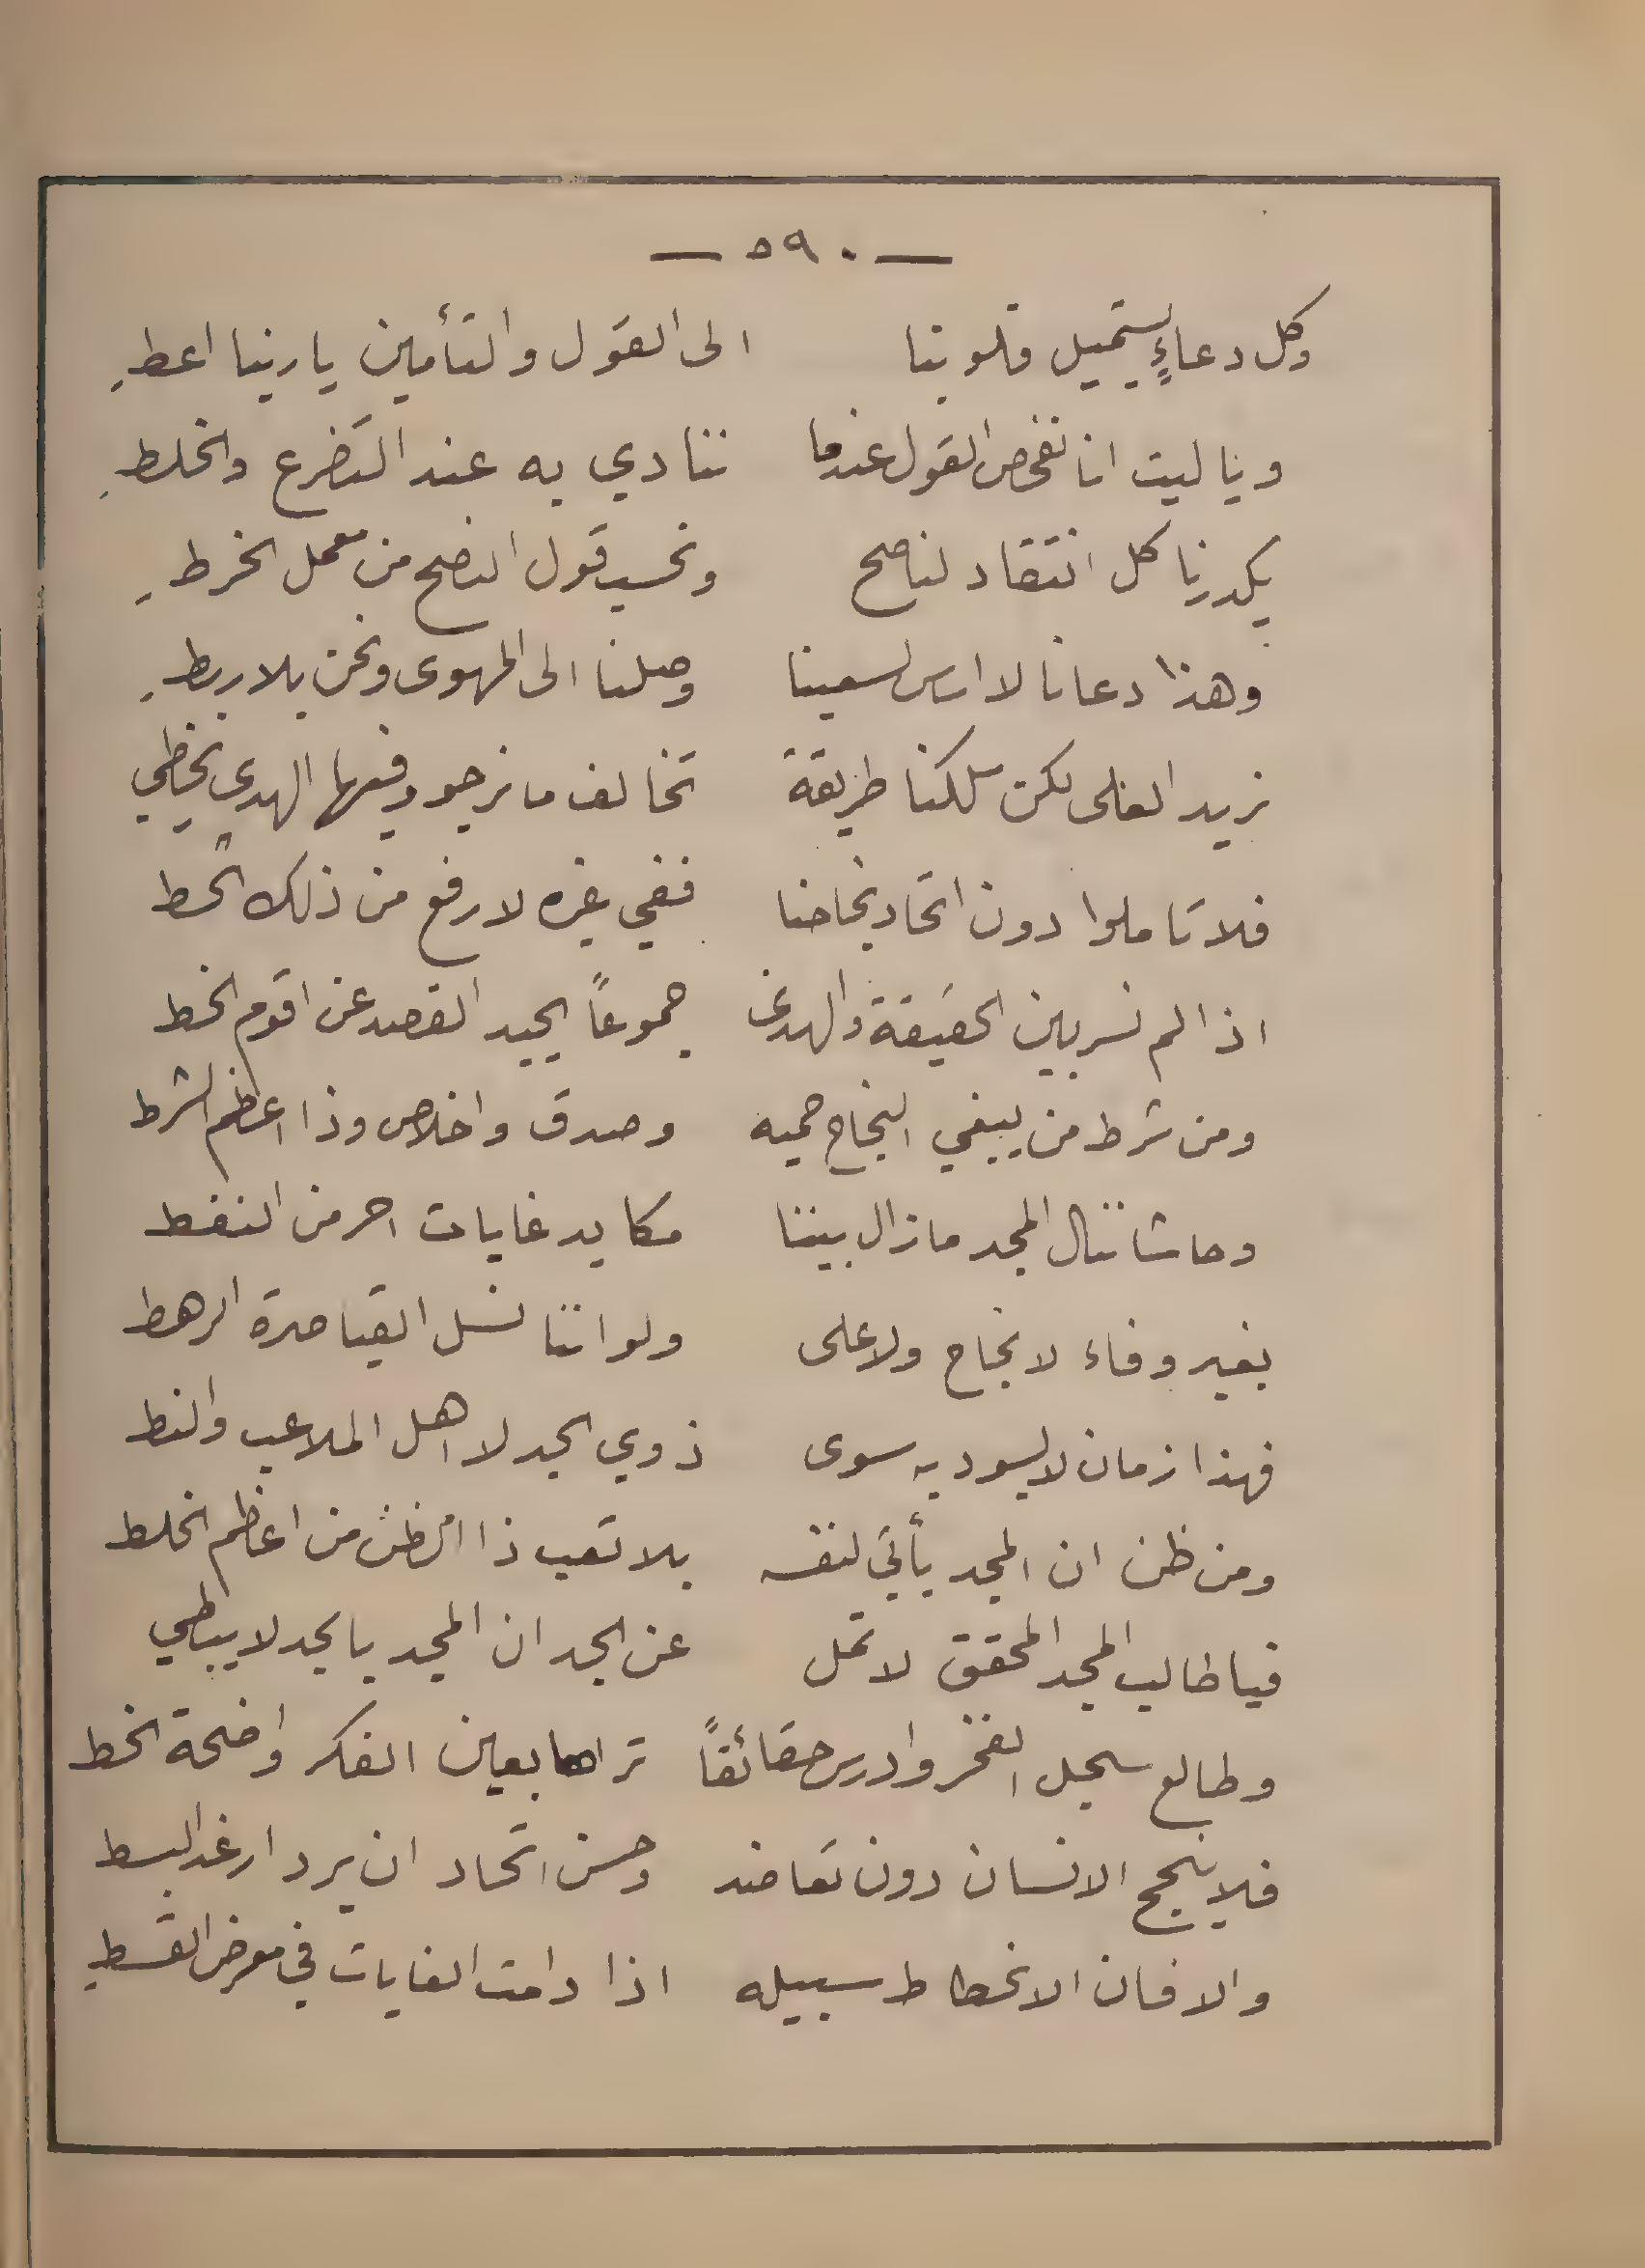 — ٥٩٠ —
وكل دعاءٍ يستميل قلوبنا الى القول والتأمين يا ربنا اعطِ
ويا ليت انا نفحص القول عندما ننادي به عند التضرع والخلطِ
يكدرنا كل انتقاد لناصح ونحسب قول النصح من معمل الخرطِ
وهذا دعانا لا اساس لسعينا وصلنا الى المهوى ونحن بلا ربطِ
نريد العلى لكن سلكنا طريقة تخالف ما نرجو وفيها الهدى نخطي
فلا تاملوا دون اتحاد نجاحنا ففي غيره لا رفع من ذلك الحط
اذا لم نسر بين الحقيقة والهدى جموعاً يحيد القصد عن اقوم الخط
ومن شرط من يبغي النجاح حميه وصدق واخلاص وذا اعظم الشرط
وحاشا ننال المجد ما زال بيننا مكايد غايات احر من النفط
بغير وفاء لا نجاح ولا على ولو اننا نسل القياصرة الرهط
فهذا زمان لا يسود به سوى ذوي الجد لا اهل الملاعب والنط
ومن ظن ان المجد يأتي لنفسه بلا تعب ذا الظن من اعظم الخلط
فيا طالب المجد المحقق لا تمل عن الجد ان المجد بالجد لا يبطي
وطالع سجل الفخر وادرس حقائقاً تراها بعين الفكر واضحة الخط
فلا ينجح الانسان دون تعاضد وحسن اتحاد ان يرد ارغد البسط
والا فان الانحطاط سبيله اذا دامت الغايات في معرض القسطِ